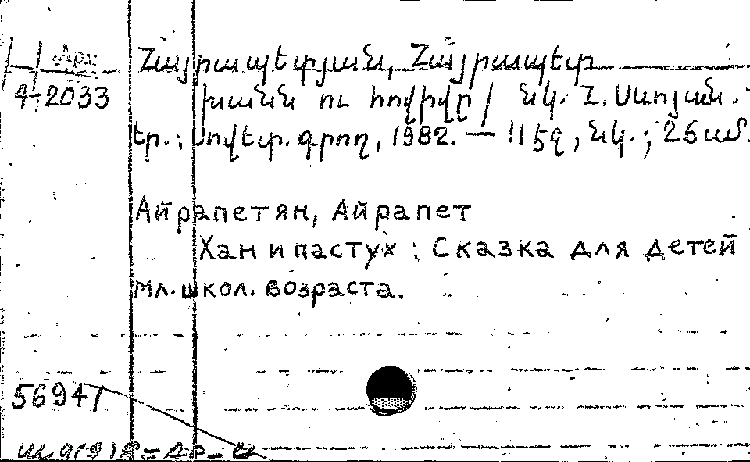 Հայրապետյան, Հայրապետ
4-2033 Խանն ու հովիվը / նկ. Հ. Մառյան. -
Եր.: Սովետ. գրող, 1982. — 115զ, նկ.; 26սմ.
Айрапетян, Айрапет
Хан и пастух : Сказка для детей
мл. школ. возраста.